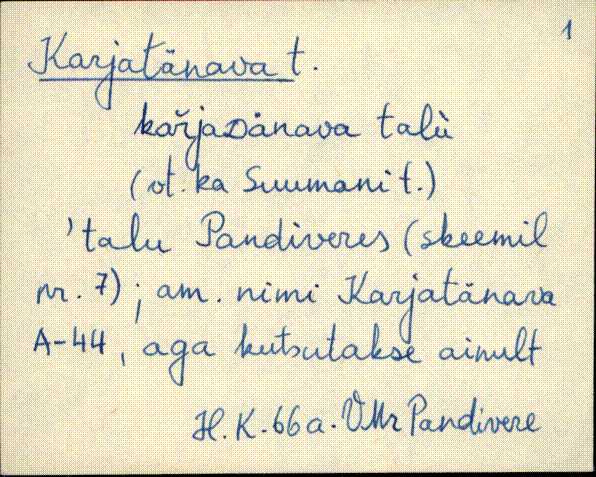 1
Karjatänava t.
kařjaᴅänava talù
(vt. ka Suumani t.)
'talu Pandiveres (skeemil
nr. 7); am. nimi Karjatänava
A-44, aga kutsutakse ainult
H. K. 66 a. VMr Pandivere